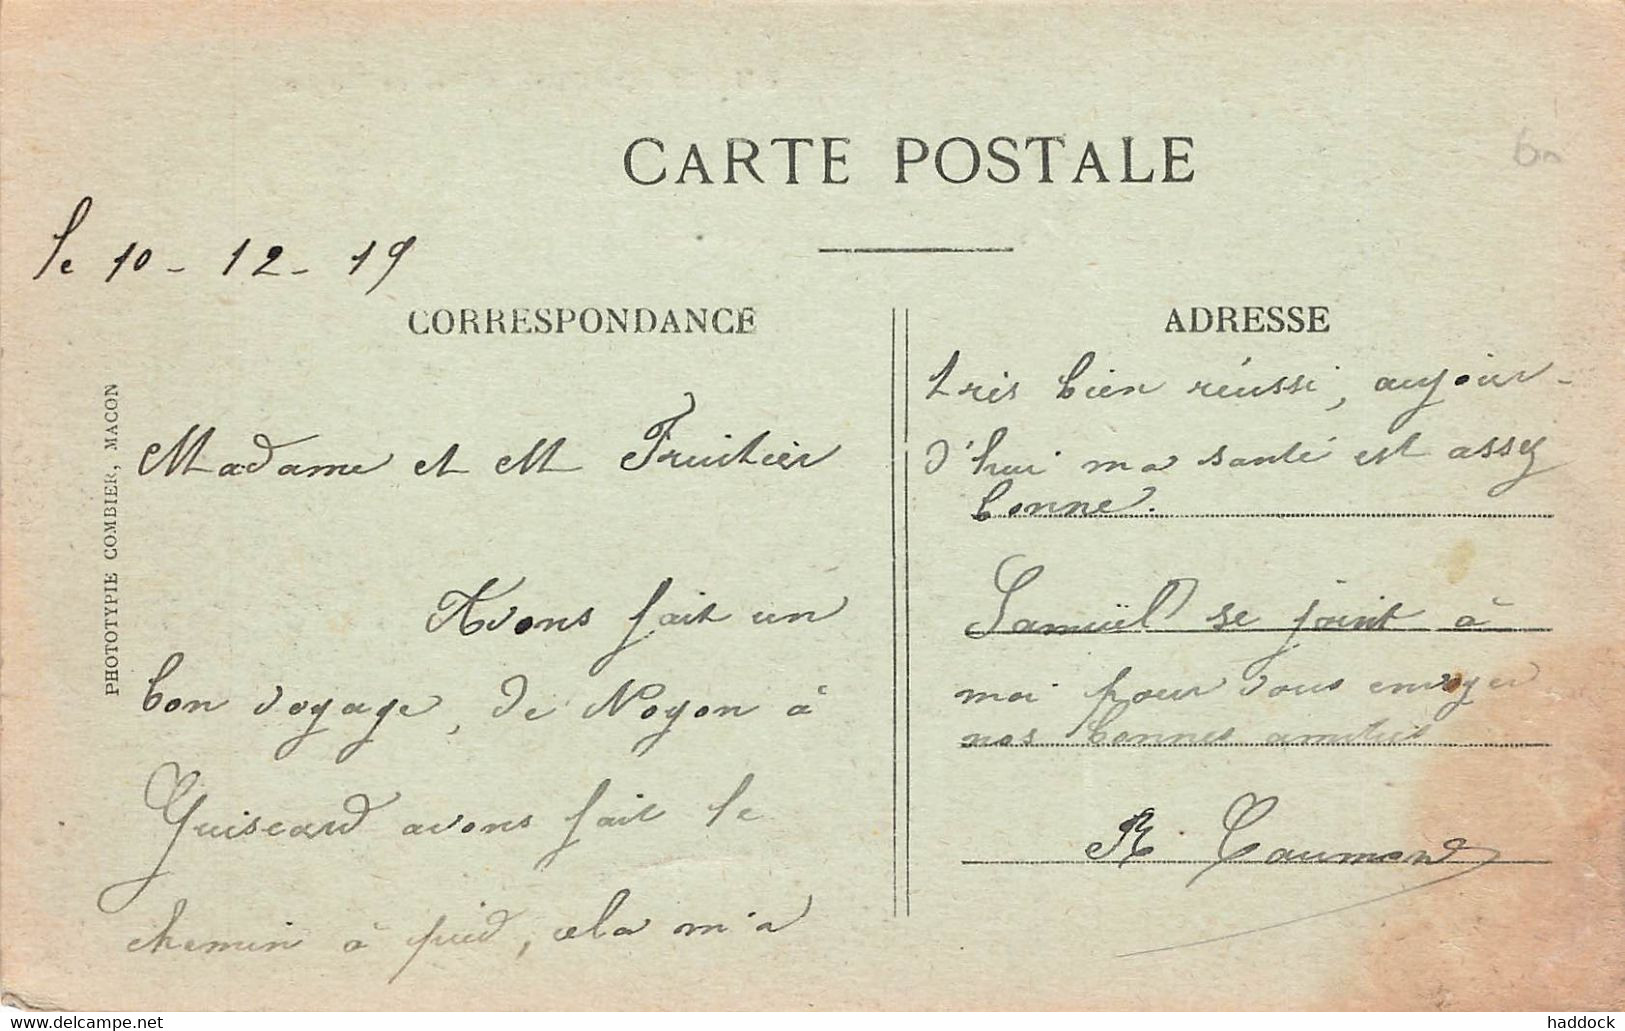 CARTE POSTALE
le 10 - 12 - 19
CORRESPONDANCE
Madame et M Fruitier
Avons fait un
bon voyage, de Noyon à
Guiscard avons fait le
chemin à pied, cela m'a
ADRESSE
très bien réussi, aujour-
d'hui ma santé est assez
bonne.
Samuël se joint à
moi pour vous envoyer
nos bonnes amitiés
R. Caumon
PHOTOTYPIE COMBIER, MACON
www.delcampe.net
haddock